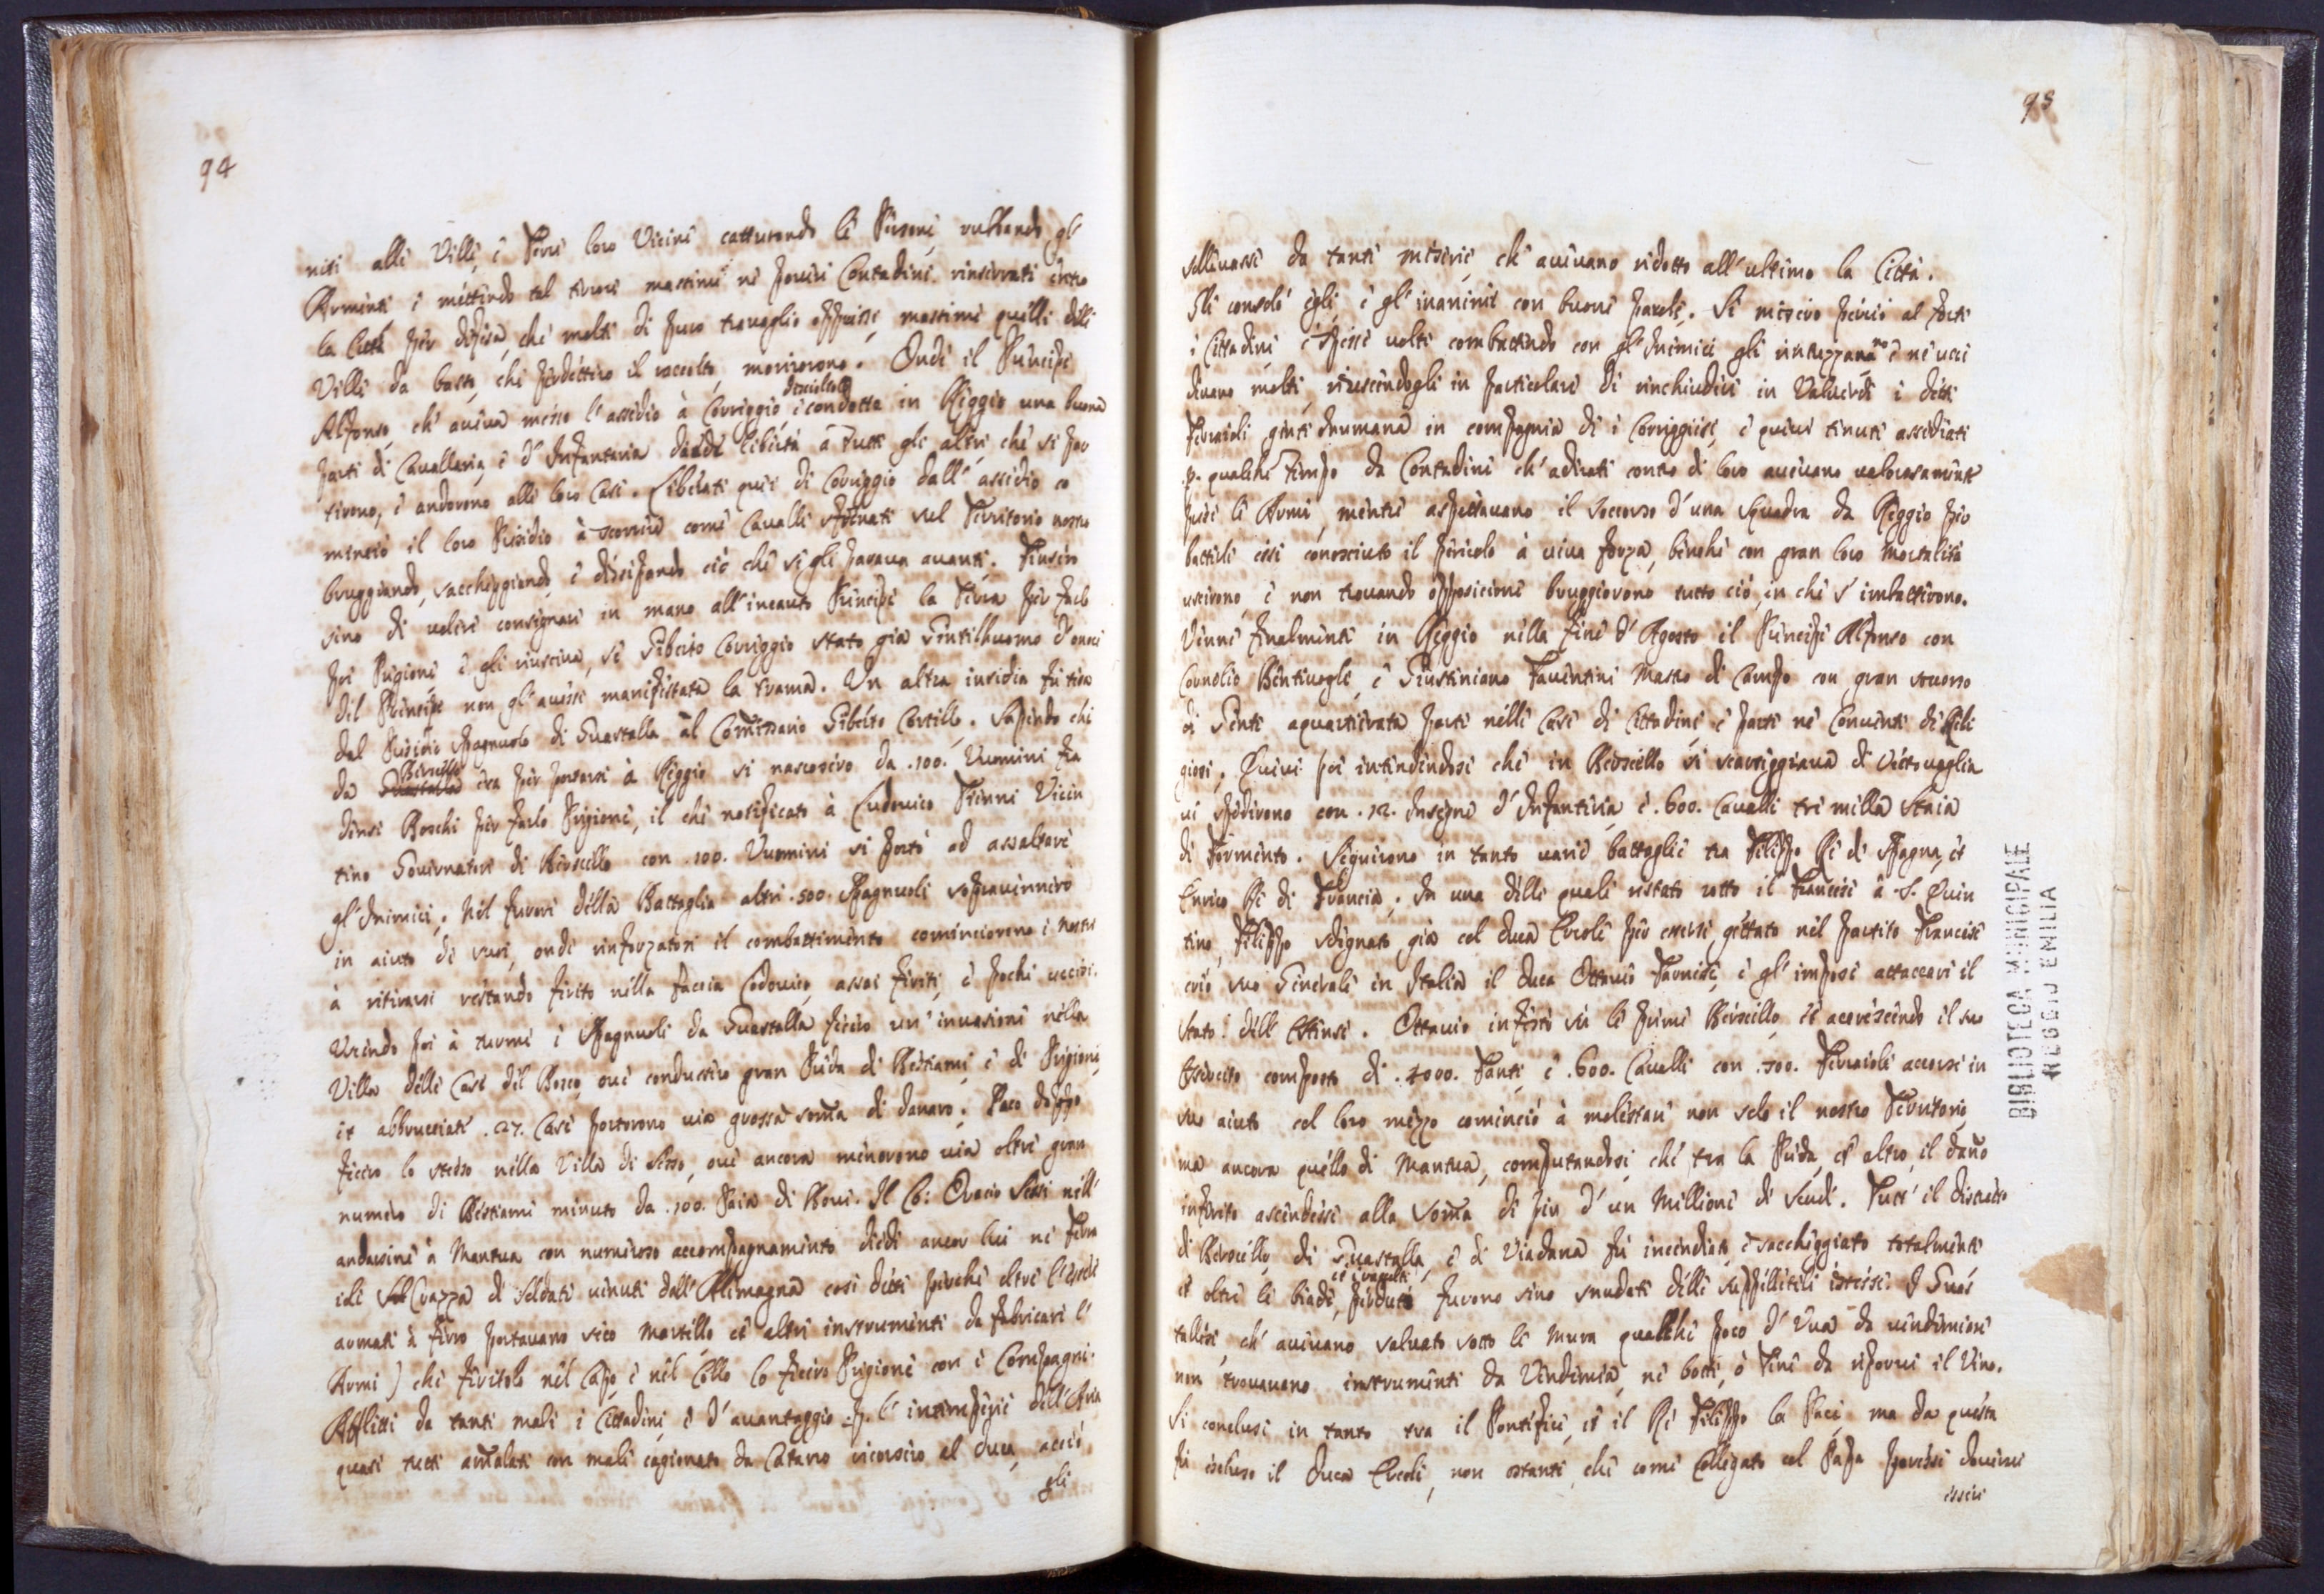 94
nisi alle Ville, e Terre loro Vicine catturando le Persone, rubbando gl'
Armenti, e mettendo tal terrore massime ne poveri Contadini rinserrati entro
la Città per difesa, che molti di puro travaglio oppressi, massime quelli delle
Ville da basso, che perdettero il raccolto, morirono. Onde il Principe
Alfonso, ch' aveva messo l' assedio à Correggio, disciolto e condotta in Reggio una buona
parte di Cavalleria, e d' Infanteria diede libertà à tutti gli altri, che si par
tirono, e andorono alle loro Case. Liberati quei di Correggio dall' assedio co
minciò il loro Presidio à scorrere come Cavalli sfrenati sul Territorio nostro
bruggiando, saccheggiando, e dissipando ciò che se gli parava avanti. Finsero
sino di volere consignare in mano all' incauto Principe la Terra per farlo
poi Prigione, e gli riusciva, se Giberto Correggio stato già Gentilhuomo d' onore
del Principe non gl' avesse manifestata la trama. Un altra insidia fu tesa
dal Presidio Spagnuolo di Guastalla al Comissario Giberto Cortillo. Sapendo che
da Bersello era per portarsi à Reggio si nascosero da .100. Uuomini fra
densi Boschi per farlo Prigione, il che notificato à Ludovico Trenni Vicen
tino Governatore di Bersello con .100. Uuomini si portò ad assaltare
gl' Inimici. Nel furore della Battaglia altri .500. Spagnuoli sopravennero
in aiuto de suoi, onde rinforzatosi il combattimento cominciorono i nostri
à ritirarsi restando ferito nella faccia Lodovico, assai feriti, e pochi uccisi.
Uscendo poi à turme i Spagnuoli da Guastalla fecero un' invasione nella
Villa delle Case del Bosco, ove condussero gran Preda di Bestiami, e di Prigioni,
et abbrucciate .27. Case portorono via grossa soma di danaro. Poco doppo
fecero lo stesso nella Villa di Sesso, ove ancora menorono via oltre gran
numero di Bestiame minuto da .100. Paia di Bovi. Il Co: Oracio Sessi nell'
andarsene à Mantua con numeroso accompagnamento diede ancor lui ne Ferra
ioli (razza di Soldati venuti dall' Allemagna così detti perche oltre l'essere
armati à ferro portavano seco Martello, et altri instrumenti da fabricare l'
Armi) che feritolo nel Capo, e nel Collo lo fecero Prigione con i Compagni.
Afflitti da tanti mali i Cittadini, e d' avantaggio p. l' intemperie dell' Aria
quasi tutti amalati con mali cagionato da Cataro ricorsero al Duca, acciò
gli
95
sollevasse da tante miserie, ch' avevano ridotto all' ultimo la Città.
Gli consolò egli, e gl' inanimì con buone parole. Si misero perciò al forte
i Cittadini, e spesse volte combattendo con gl' Inimici gli rintuzzavano, e ne ucci
devano molti, riuscendogli in particolare di rinchiudere in Valverde i detti
Ferraioli gente Inumana in compagnia di i Correggiesi, e quivi tenuti assediati
p. qualche tempo da Contadini ch' adirati contro di loro avevano valorosamente
prese le Armi, mentre aspettavano il soccorso d' una squadra da Reggio per
batterli essi conosciuto il pericolo à viva forza, benche con gran loro mortalità
uscirono, e non trovando opposicione bruggiorono tutto ciò, in che s' imbatterono.
Venne finalmente in Reggio nella fine d' Agosto il Principe Alfonso con
Cornelio Bentivogli, e Giustiniano Faventini Mastro di Campo con gran soccorso
di Gente aquartierata parte nelle Case di Cittadini, e parte ne Conventi di Reli
giosi. Quivi poi intendendosi che in Bersello si scarseggiava di Vettovaglia
vi spedirono con .12. Insegne d' Infanteria, e .600. Cavalli tre milla Staia
di Formento. Seguirono in tanto varie battaglie tra Filippo Re di Spagna, et
Enrico Re di Francia. In una delle quali restato rotto il Francese à S. Quin
tino, Filippo sdignato già col Duca Ercole per essersi gettato nel partito Francese
creò suo Generale in Italia il Duca Ottavio Farnese, e gl' impose attaccare il
Stato dell' Estense. Ottavio infestò su le prime Bersello, et acrescendo il suo
Essercito composto di .4000. Fanti, e .600. Cavalli con .500. Ferraioli accorsi in
suo aiuto col loro mezzo cominciò à molestare non solo il nostro Territorio,
ma ancora quello di Mantua, computandosi, che tra la Preda, et altro, il dano
inferito ascendesse alla soma di piu d' un Millione di Scudi. Tutt' il distretto
di Bersello, di Guastalla, e di Viadana fu incendiato, e saccheggiato totalmente
et oltre le biade, et i raccolti perduti furono sino snudati delle suppellettili istesse. I Guas
tallesi, ch' avevano salvato sotto le Mura qualche poco d' Uva da vendemiare
non trovavano instrumenti da Vendemia, ne botti, ò Tine da riporvi il Vino.
Si concluse in tanto tra il Pontefice, et il Re Filippo la Pace, ma da questa
fu escluso il Duca Ercole, non ostante, che come Collegato col Papa paresse dovervi
essere
BIBLIOTECA MUNICIPALE
REGGIO EMILIA